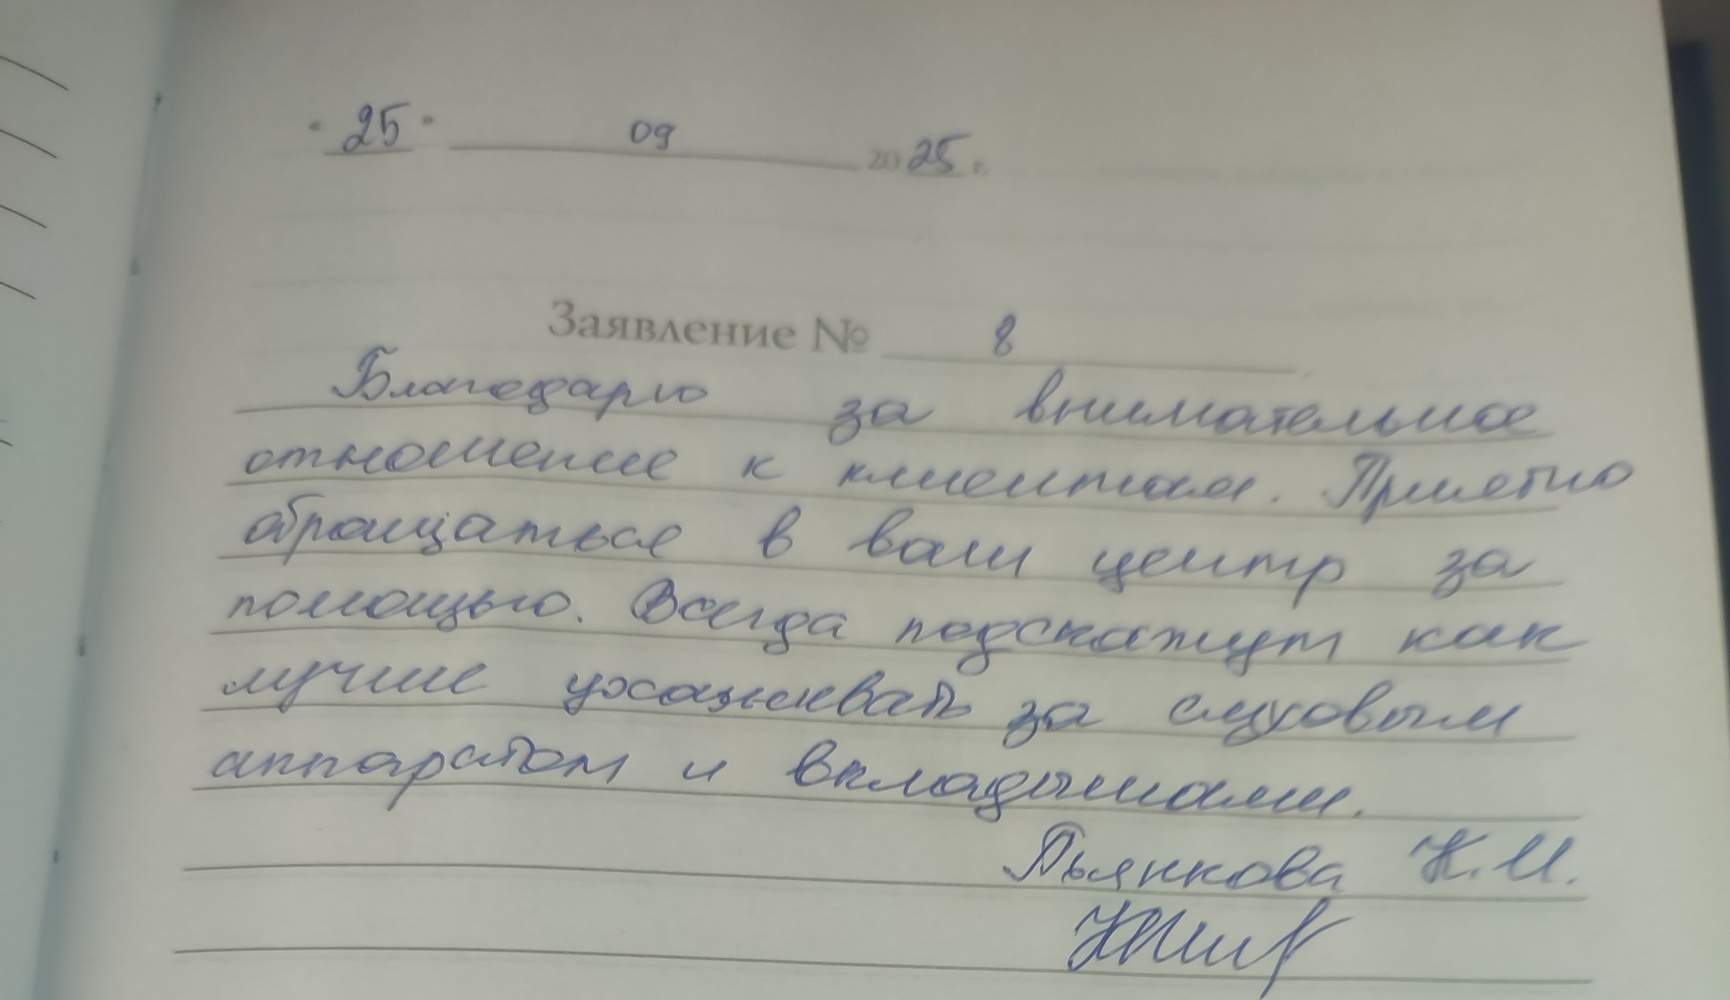 "25" 09 2025 г.
Заявление № 8
Благодарю за внимательное
отношение к клиентам. Приятно
обращаться в ваш центр за
помощью. Всегда подскажут как
лучше ухаживать за слуховым
аппаратом и вкладышами.
Пьянкова Н.И.